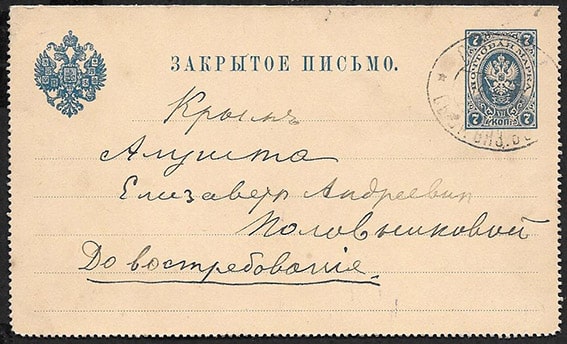 ЗАКРЫТОЕ ПИСЬМО.
7 ПОЧТОВАЯ МАРКА 7
7 КОП. 7
Крымъ
Алушта
Елизаветѣ Андреевнѣ
Половниковой
До востребованія.